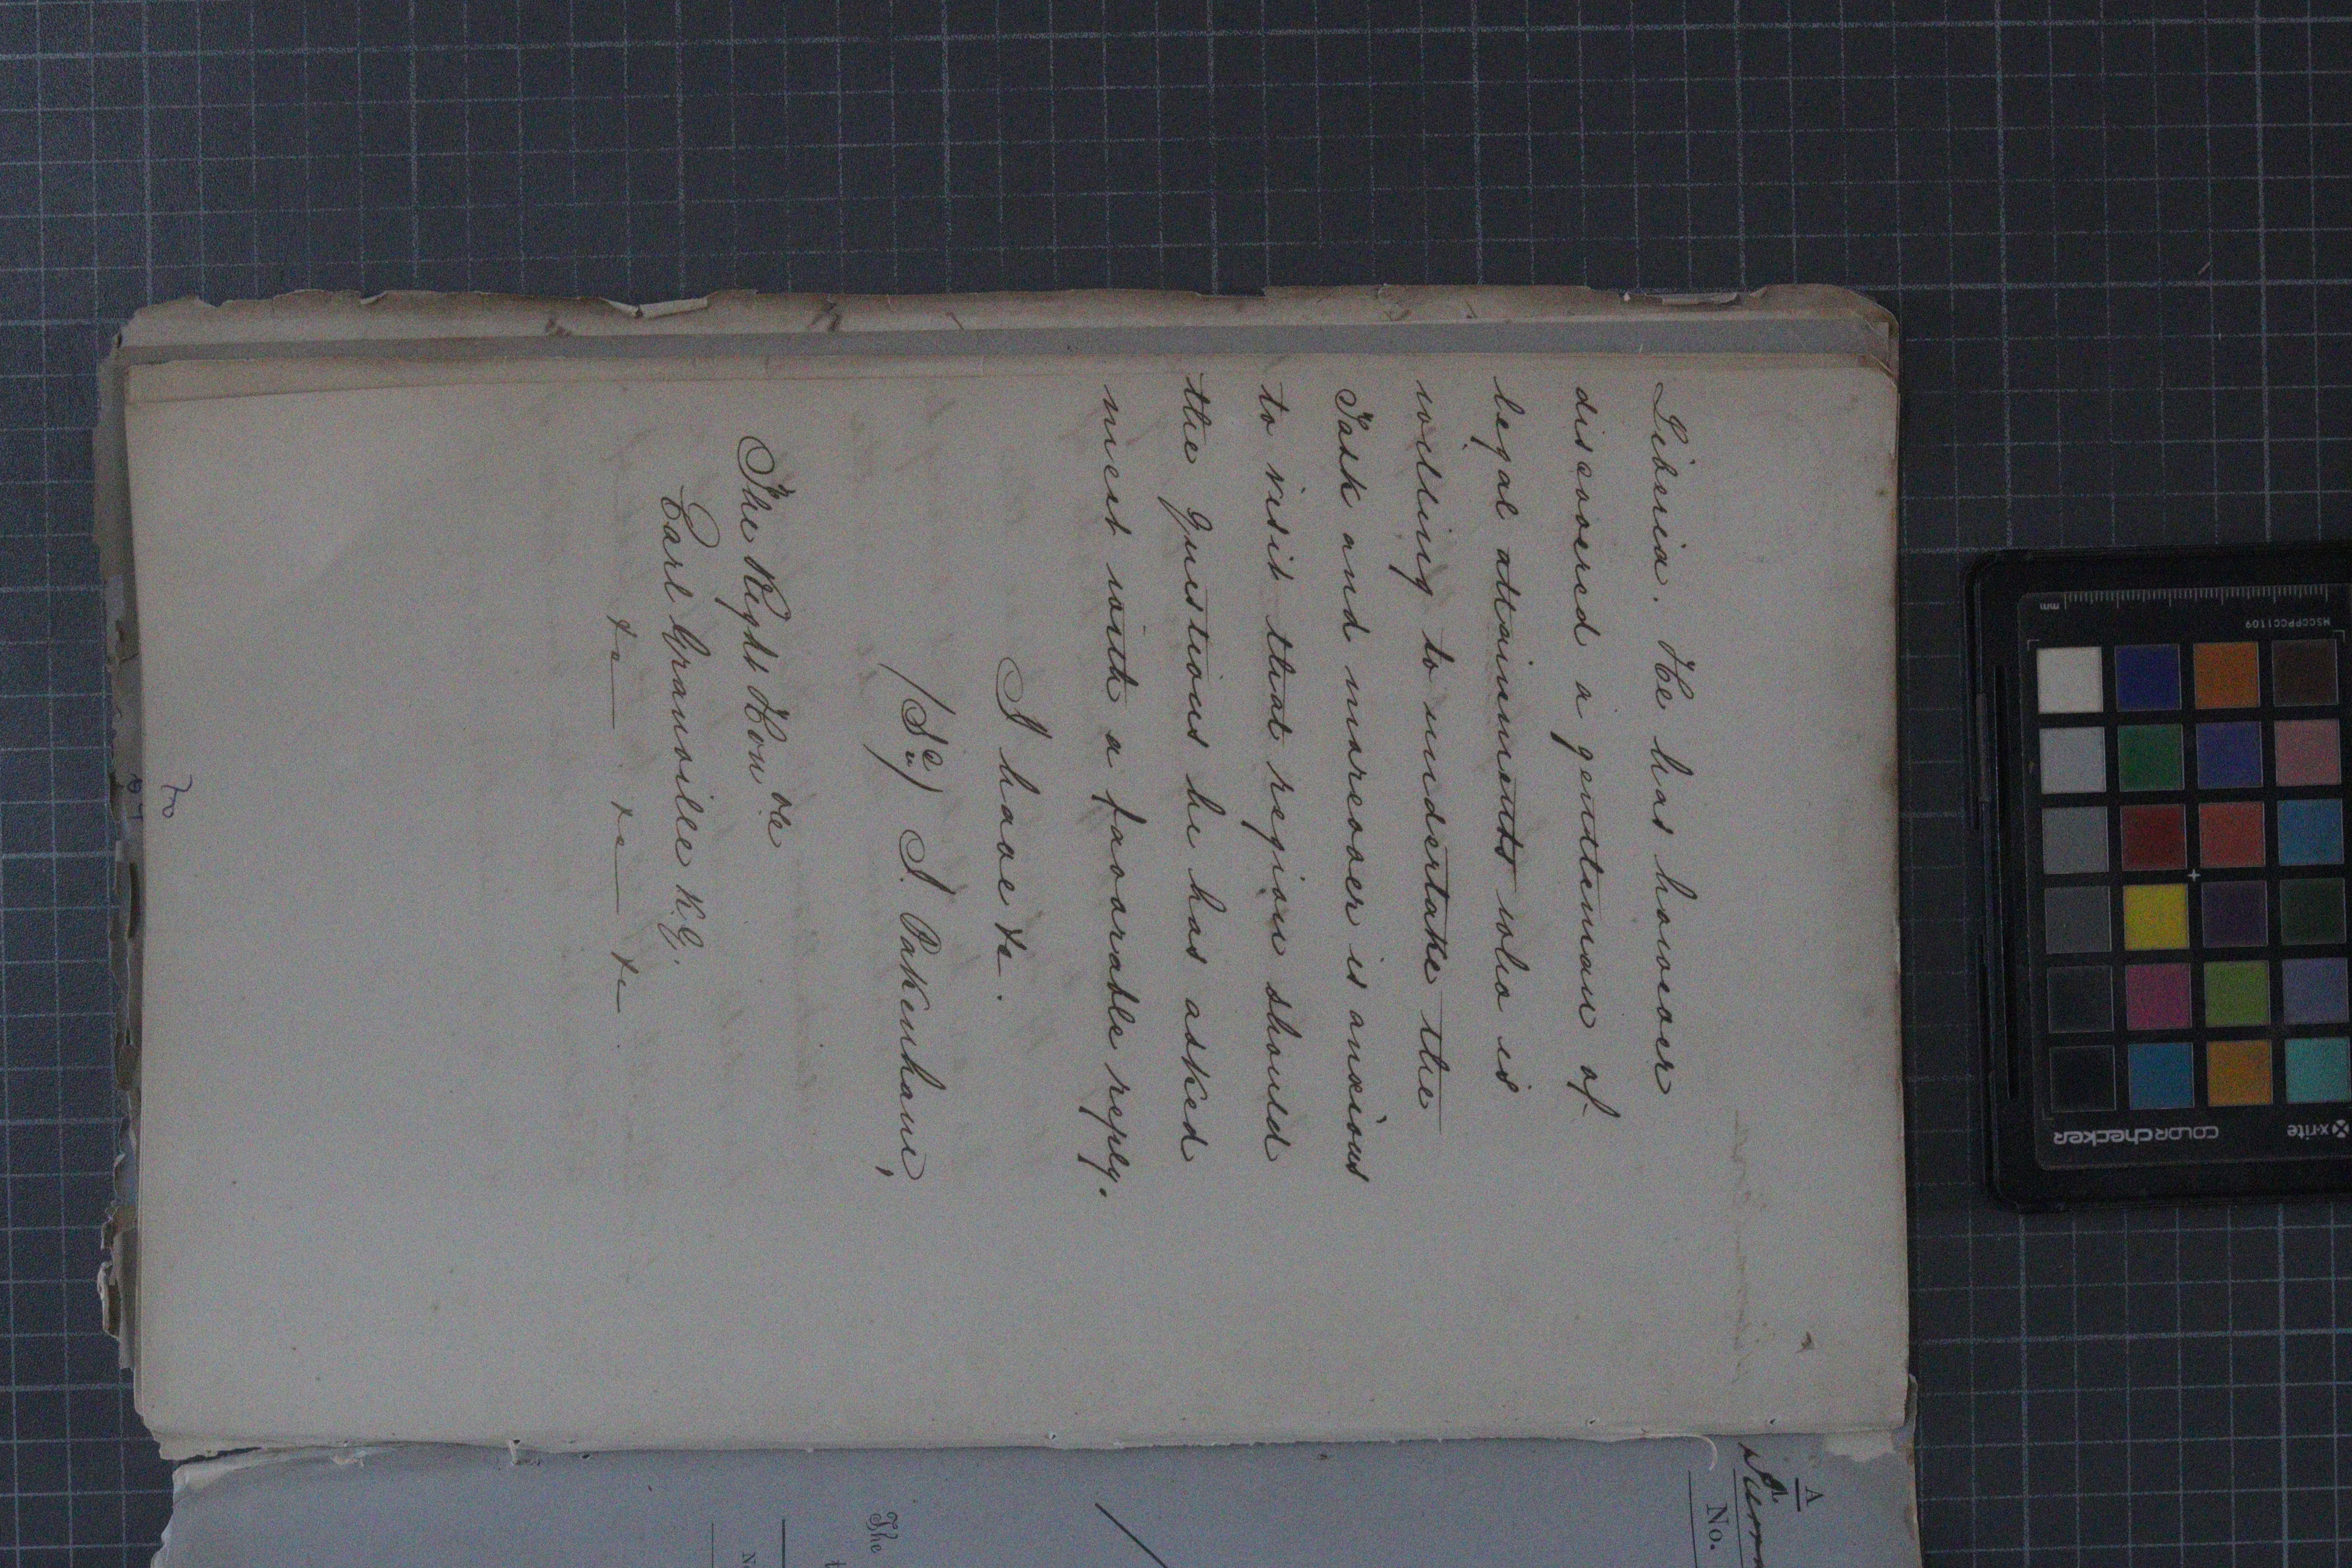 Liberia. He has however
discovered a gentleman of
legal attainments who is
willing to undertake the
Task and moreover is anxious
to visit that region should
the Questions he has asked
meet with a favorable reply.
I have &c.
(Sd.) F. Pakenham,
The Right Honble
Earl Granville K.G.
&c &c &c
70
A
No.
The
x-rite
COLORchecker
MSCCPPCC1109
mm